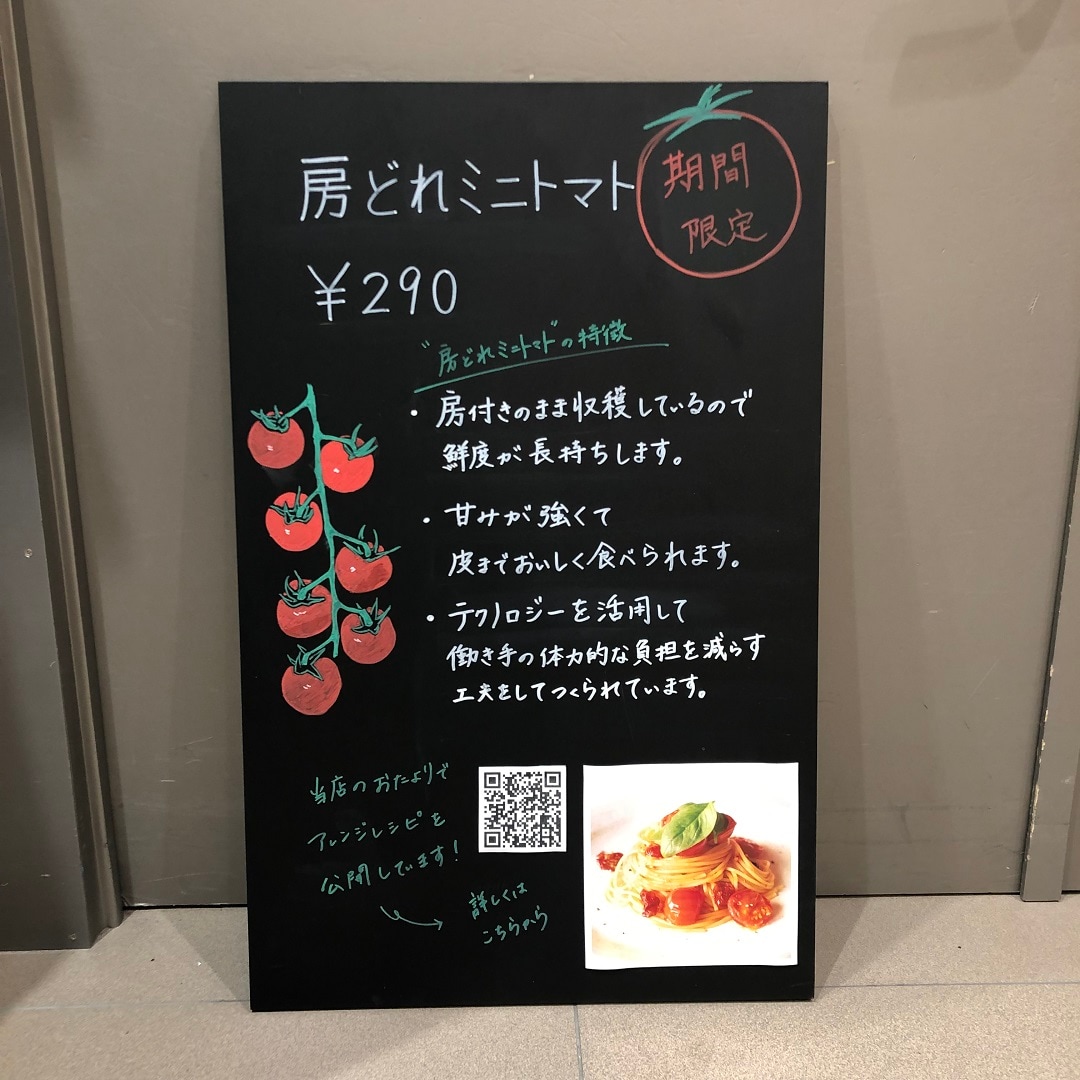 房どれミニトマト
期間
限定
¥290
"房どれミニトマト"の特徴
・房付きのまま収穫しているので
鮮度が長持ちします。
・甘みが強くて
皮までおいしく食べられます。
・テクノロジーを活用して
働き手の体力的な負担を減らす
工夫をしてつくられています。
当店のおたよりで
アレンジレシピを
公開しています!
詳しくは
こちらから